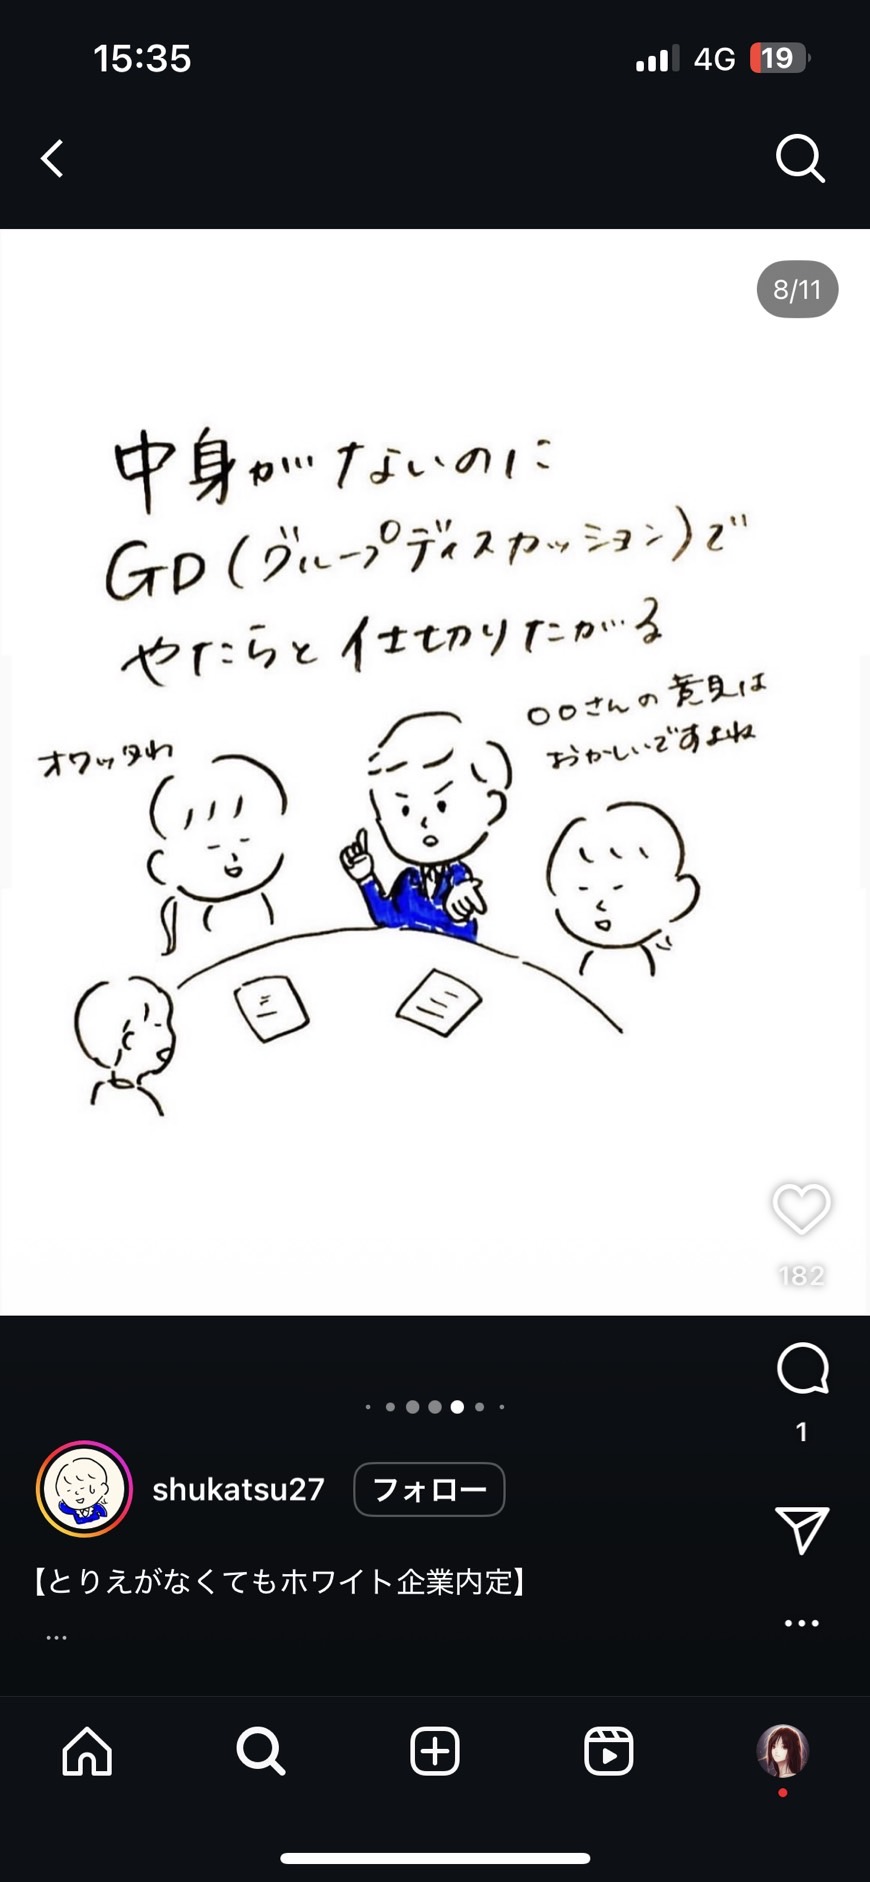 15:35
4G
19
8/11
中身がないのに
GD(グループディスカッション)で
やたらと仕切りたがる
〇〇さんの意見は
おかしいですよね
オワッタわ
182
1
shukatsu27
フォロー
【とりえがなくてもホワイト企業内定】
...